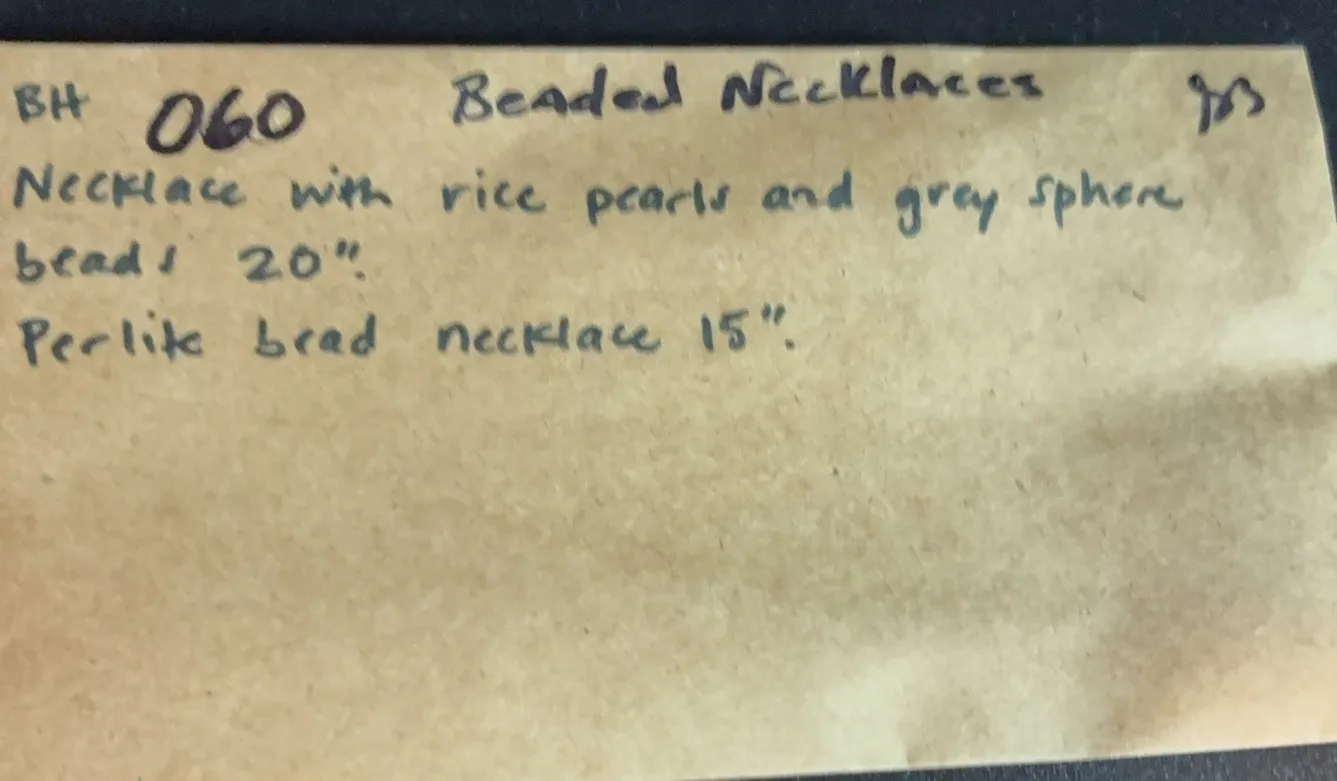 BH 060 Beaded Necklaces
Necklace with rice pearls and grey sphere
beads 20".
Perlite bead necklace 15".